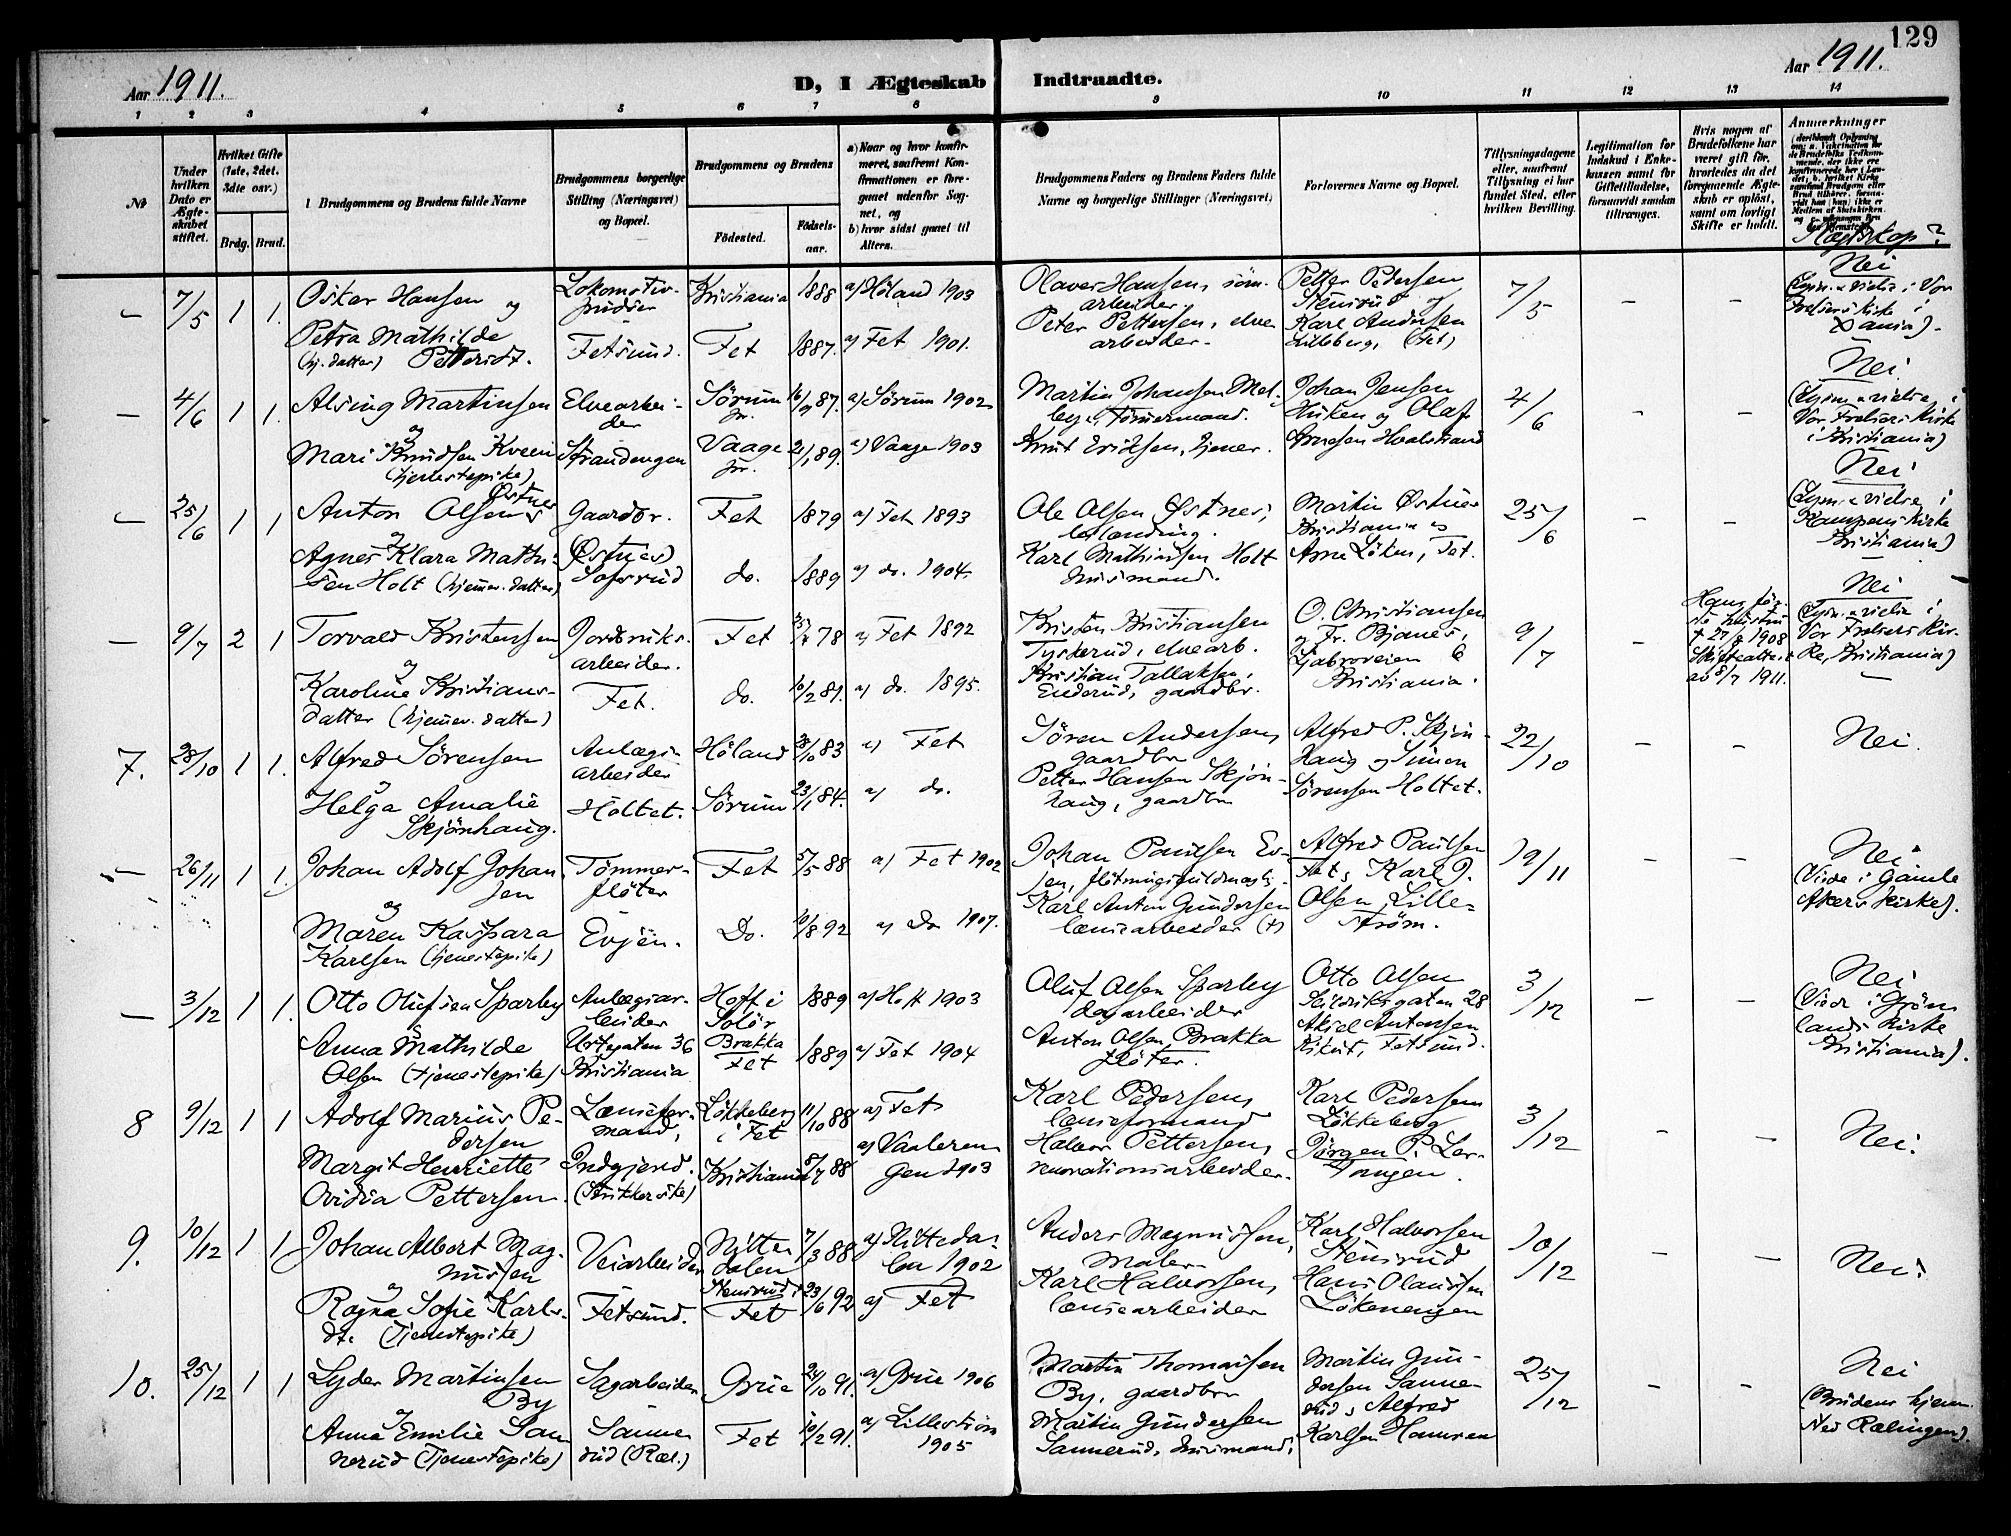 129
Aar 1911.
D, I Ægteskab Indtraadte.
Aar 1911.
1 2 3 4 5 6 7 8 9 10 11 12 13 14
No
Under hvilken Dato er Ægteskabet stiftet.
Hvilket Gifte (1ste, 2det, 3die osv.)
Brdg. Brud.
Brudgommens og Brudens fulde Navne
Brudgommens borgerlige Stilling (Næringsvei) og Bopæl.
Brudgommens og Brudens
Fødested.
Fødselsaar.
a) Naar og hvor konfirmeret, saafremt Konfirmationen er foregaaet udenfor Sognet, og
b) hvor sidst gaaet til Alters.
Brudgommens Faders og Brudens Faders fulde Navne og borgerlige Stillinger (Næringsvei)
Forlovernes Navne og Bopæl.
Tillysningsdagene eller, saafremt Tillysning ei har fundet Sted, efter hvilken Bevilling.
Legitimation for Indskud i Enkekassen samt for Giftetilladelse, forsaavidt saadan tiltrænges.
Hvis nogen af Brudefolkene har været gift før, hvorledes da det foregaaende Ægteskab er opløst, samt om lovligt Skifte er holdt.
Anmerkninger
Slægtskap?
– 7/5 1 1. Oskar Hansen og
Lokomotivpudser
Kristiania 1888 a) Höland 1903
Olaver Hansen, som. arbeider.
Petter Pedersen Stensrud og
7/5 – – Nei
Petra Mathilde (hj. datter) Pettersdt.
Fetsund. Fet 1887. a) Fet 1901.
Peter Pettersen, elvearbeider.
Karl Andersen Lilleberg, (Fet)
(Lysn. & vielse i Vor Frelsers kirke i Xania).
– 4/6 1 1. Alsing Martinsen og
Elvearbeider
Sørum 16/9 87. a) Sørum 1902
Martin Johansen Melby, tömmermand.
Johan Jensen Huken og Olaf
4/6 – – Nei
Mari Knudsen Kveen (tjenestepike)
Strandengen Vaage 21/1 89. a) Vaage 1903
Knut Eriksen,
Arnesen Hvalstrand
(Lysn. & vielse i Vor Frelsers kirke i Kristiania)
– 25/6 1 1 Anton Olsen Østnes og
Gaardbr. Fet 1879 a) Fet 1893
Ole Olsen Østnes,
Martin Østnes Kristiania og
25/6 – – Nei
Agnes Klara Mathisen Holt (hjemmev. datter)
(Østnes) do. 1889 a) do. 1904.
Karl Mathiassen Holt husmand.
Arne Löken, Fet.
(Lysn. & vielse i Kampens kirke Kristiania)
– 9/7 2 1 Torvald Kristensen og
Jordbruksarbeider. Fet 78 a) Fet 1892
Kristen Kristiansen Tyskerud, elvearb.
O. Christiansen og Fr. Bjanes,
9/7 – 1908 Skifteattest av 8/7 1911.
Nei
Karoline Kristiansdatter (hjemmev. datter)
Fet. do. 10/2 81. a) do. 1895.
Kristian Tallaksen, Enderud, gaardbr.
Ljabroveien 6 Kristiania.
(Lysn. & vielse i Vor Frelsers kirke, Kristiania)
7. 28/10 1 1. Alfred Sörensen og
Anlægsarbeider Höland 28/10 83 a) Fet
Sören Andersen, gaardbr
Alfred P. Skjönhaug og Simen
22/10 – – Nei.
Helga Amalie Skjönhaug.
Holtet. Sörum 23/1 84. a) do.
Petter Hansen Skjönhaug, gaardbr
Sörensen Holtet.
– 26/11 1 1. Johan Adolf Johansen og
Tömmerflöter Fet 5/5 88 a) Fet 1902
Johan Paulsen Evjen, flötningsfuldmægt.
Alfred Paulsen Fet, Karl J.
19/11 – – Nei
Maren Kaspara Karlsen (tjenestepike)
Evjen. Do. 10/8 92 a) Do 1907.
Karl Anton Gundersen lensearbeider (†)
Olsen, Lilleström.
(Viede i Gamle Akers kirke).
– 3/12 1 1. Otto Olufsen Sparby og
Anlægsarbeider Hoff i Solör 1889 a) Hoff 1903
Oluf Olsen Sparby dagarbeider
Otto Olsen 28
3/12 – – Nei
Anna Mathilde Olsen (tjenestepike)
Urtegaten 36 Kristiania Brakka Fet 1889 a) Fet 1904
Anton Olsen Brakka flöter.
Aksel Antonsen Rikut, Fetsund.
(Viede i Grönlands kirke Kristiania).
8 9/12 1 1 Adolf Marius Pedersen
Lænseformand, Lökkeberg i Fet 11/10 88 a) Fet
Karl Pedersen, lænseformand
Karl Pedersen Lökkeberg
3/12 – – Nei.
Margit Henriette Ovidia Pettersen.
(Strikkerske) Kristiania 8/7 88 a) Vaalerengen 1903
Halvor Pettersen, renovationsarbeider.
Jörgen P. Lertangen.
9. 10/12 1 1 Johan Albert Magnussen og
Veiarbeider Nittedalen 7/3 88 a) Nittedalen 1902
Anders Magnussen, Maler
Karl Halvorsen Stensrud
10/12 – – Nei.
Ragna Sofie Karlsdt. (Tjenestepike)
Fetsund. Stensrud i Fet 23/6 92 a) Fet
Karl Halvorsen, lænsearbeider
Hans Olaussen Lökenengen
10. 25/12 1 1 Lyder Martinsen By og
Sagarbeider Grue 24/10 91. a) Grue 1906
Martin Thomassen By, gaardbr
Martin Gundersen Sannerud, Alfred
25/12 – – Nei
Anna Emilie Sannerud (Tjenestepike)
Sannerud (Ræl.) Fet 10/2 91. a) Lilleström 1905
Martin Gundersen Sannerud, husmand,
Karlsen Hamran
(Brudens hjem. Ned. Rælingen).